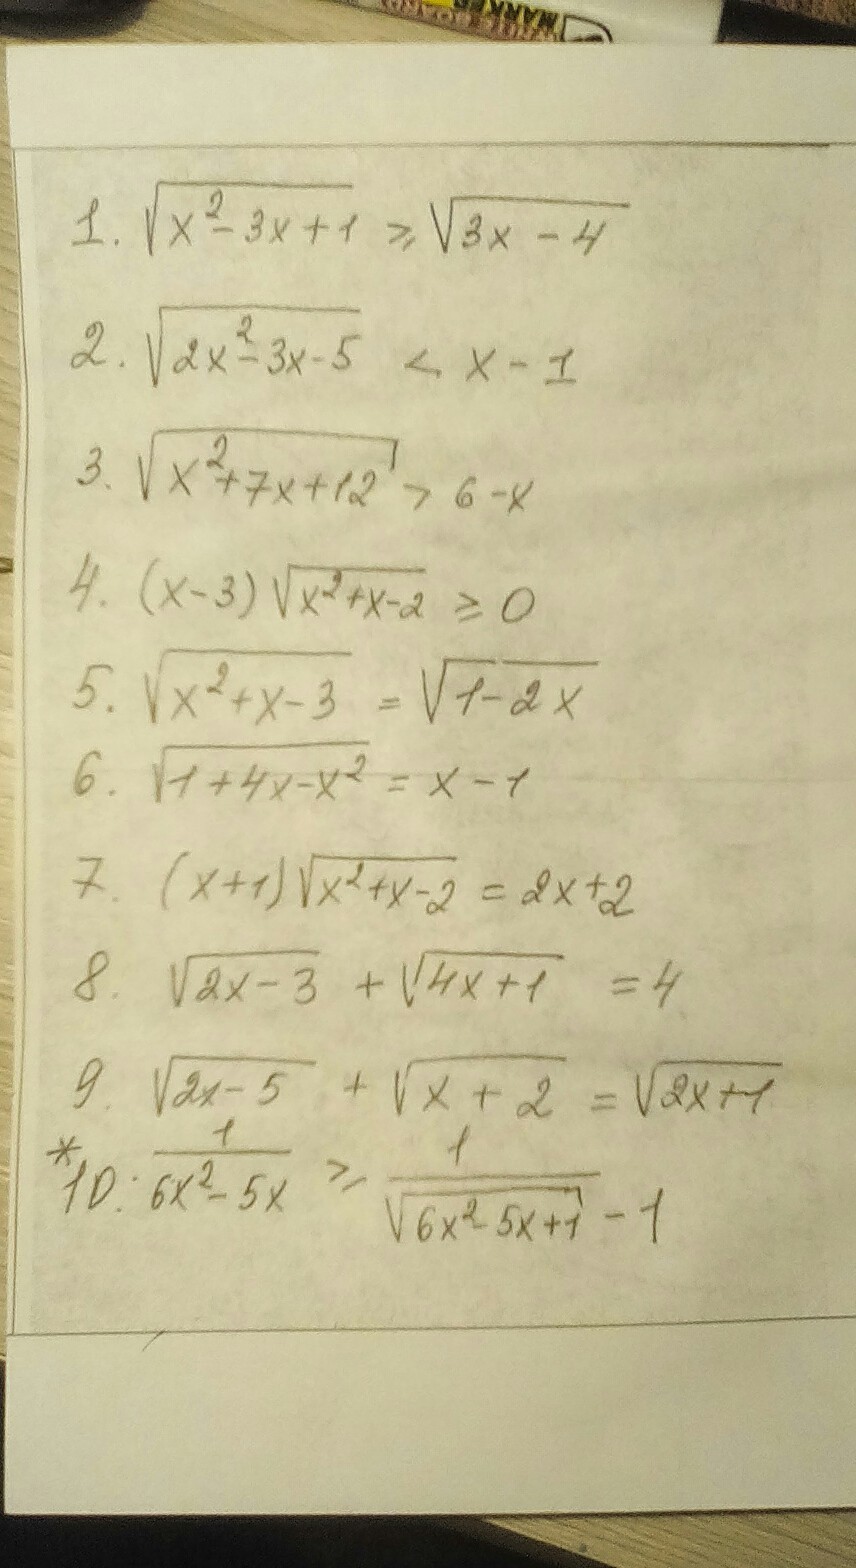 MARKER
1. √(x²-3x+1) ⩾ √(3x-4)
2. √(2x²-3x-5) < x-1
3. √(x²+7x+12) > 6-x
4. (x-3)√(x²+x-2) ⩾ 0
5. √(x²+x-3) = √(1-2x)
6. √(1+4x-x²) = x-1
7. (x+1)√(x²+x-2) = 2x+2
8. √(2x-3) + √(4x+1) = 4
9. √(2x-5) + √(x+2) = √(2x+1)
*10. 1/(6x²-5x) ⩾ 1/(√(6x²-5x+1) - 1)